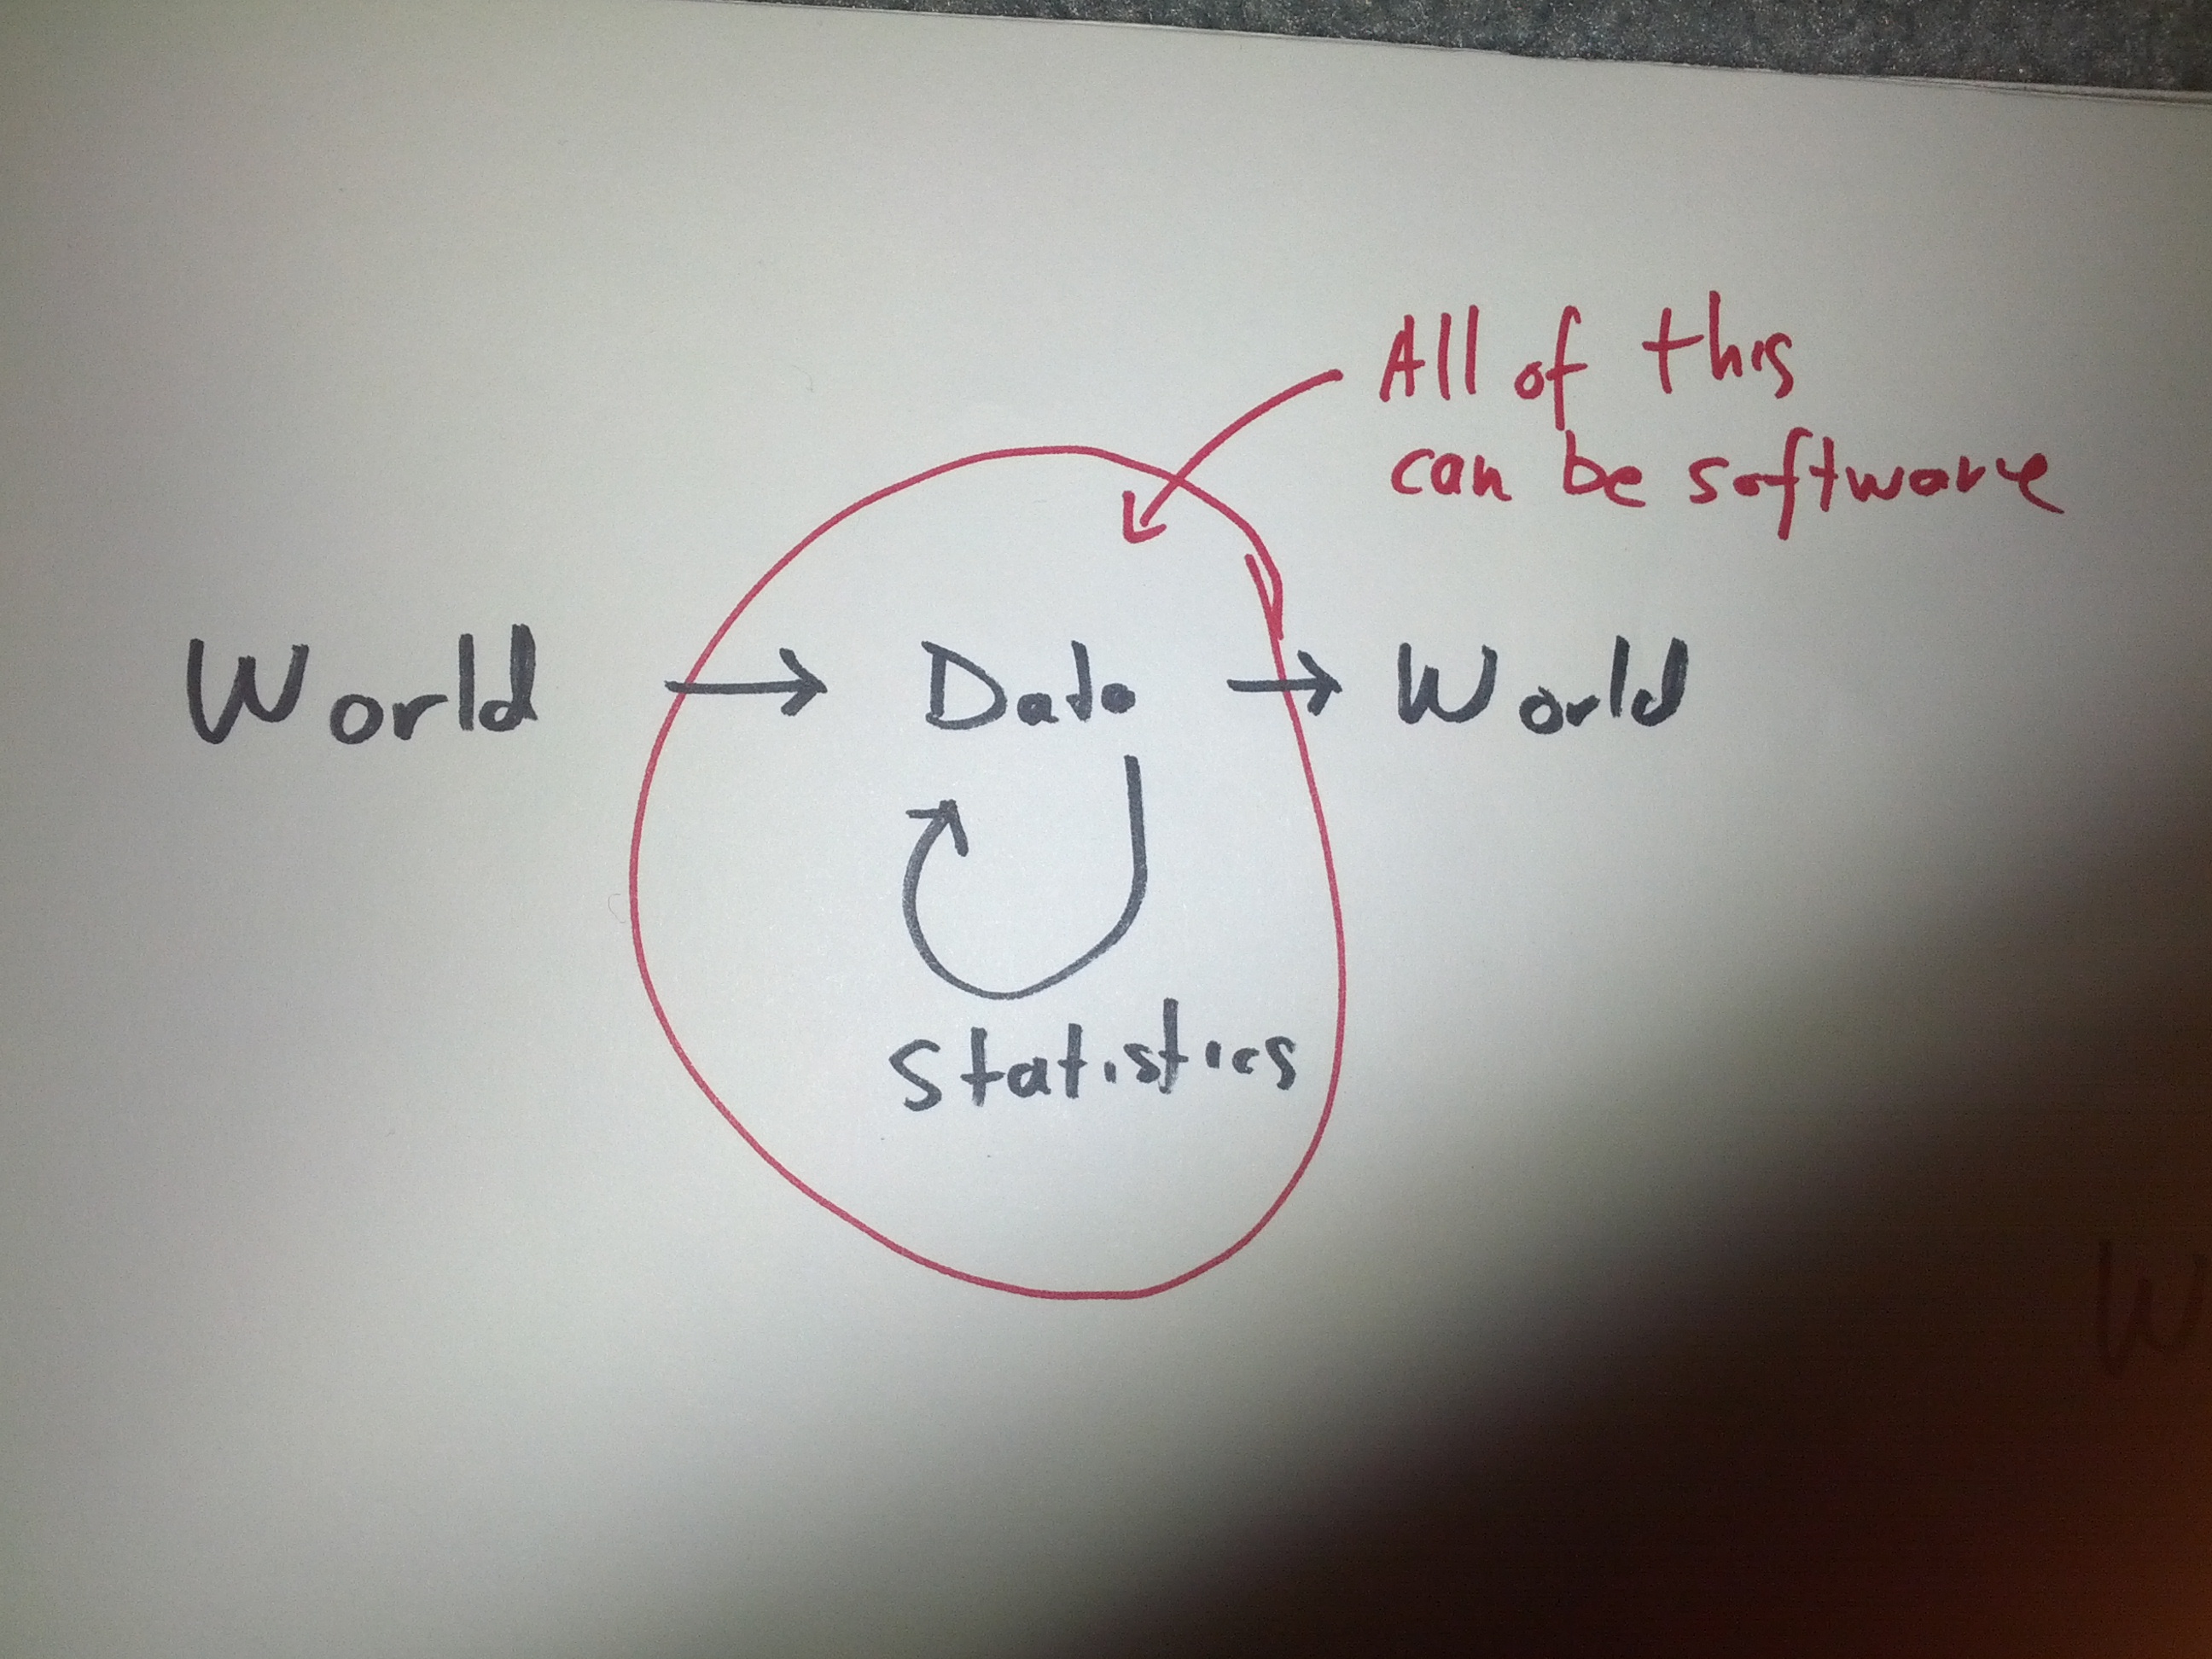 All of this
can be software
World → Data → World
Statistics
W